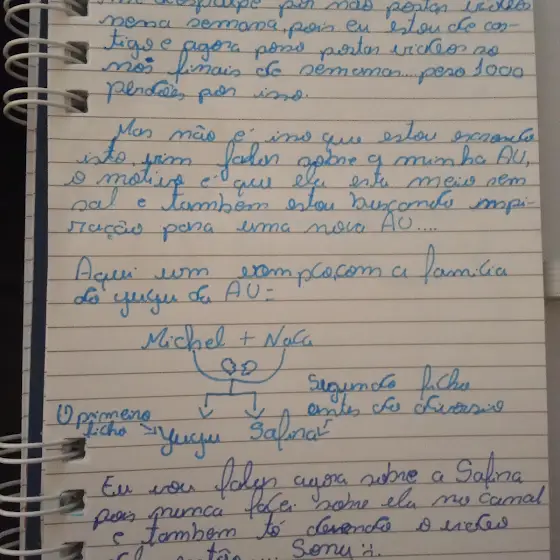 me desculpe por não postar videos
nessa semana, pois eu estou de cas-
tigo e agora posso postar videos so
nos finais de semanas... peso 1000
perdões por isso.
Mas não é isso que estou escrevendo
isto, vim falar sobre a minha AU,
o motivo é que ela esta meio sem
sal e tambem estou buscando inspi-
ração para uma nova AU....
Aqui um exemplo, com a familia
do yuyu da AU=
Michel + Nala
Segundo ficho
antes do divorsio
O primeiro
ficho → yuyu Safina
Eu vou falar agora sobre a Safina
pois nunca falei sobre ela no canal
e tambem tô devendo o video
Sonu